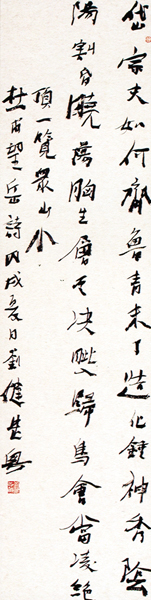 岱宗夫如何齊魯青未了造化鍾神秀陰
陽割昏曉蕩胸生層雲決眦歸鳥會當凌絕
頂一覽眾山小
杜甫望岳詩丙戌夏日劉健